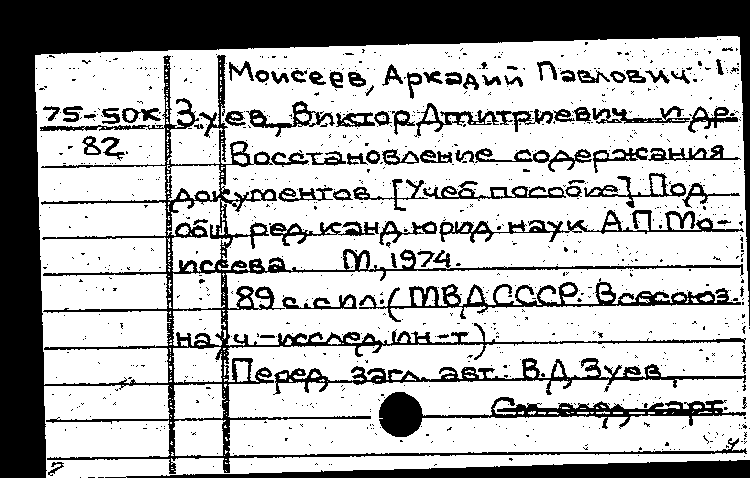 Моисеев, Аркадий Павлович. 1
75-50к Зуев, Виктор Дмитриевич и др
82 Восстановление содержания
документов. [Учеб. пособие]. Под
общ. ред. канд. юрид. наук А.П. Мо-
исеева. М., 1974.
89 с. с ил. (МВД СССР. Всесоюз.
науч.-исслед. ин-т).
Перед загл. авт.: В.Д. Зуев,
См. след. карт.